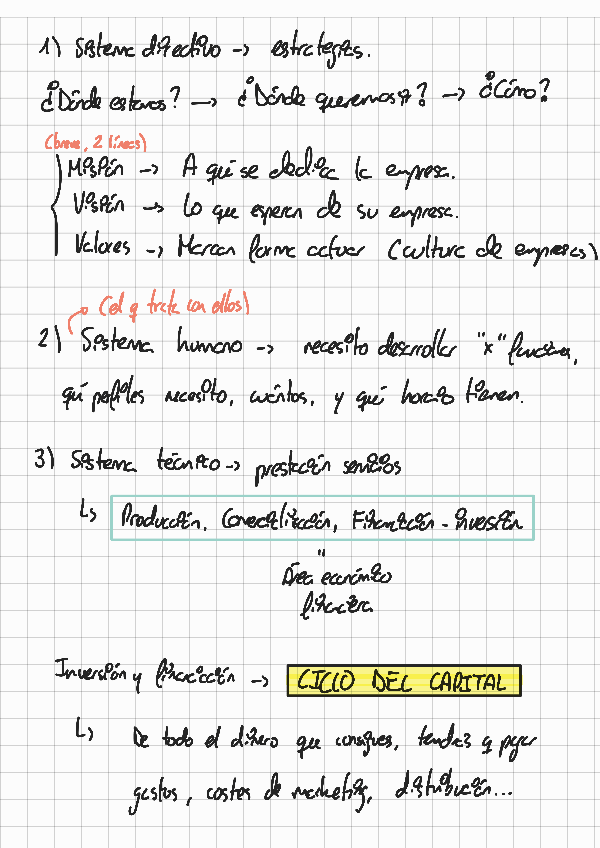 1) Sistema directivo → estrategias.
¿Dónde estamos? → ¿Dónde queremos ir? → ¿Cómo?
(breve, 2 líneas)
Misión → A qué se dedica la empresa.
Visión → Lo que esperan de su empresa.
Valores → Marcan forma actuar (cultura de empresas)
(el q trata con ellos)
2) Sistema humano → necesito desarrollar "x" funciones,
qué perfiles necesito, cuántos, y qué horario tienen.
3) Sistema técnico → prestación servicios
↳ Producción, Comercialización, Financiación - inversión
"
Área económico
financiera
Inversión y financiación → CICLO DEL CAPITAL
↳ De todo el dinero que consigues, tendrás q pagar
gastos, costes de marketing, distribución...